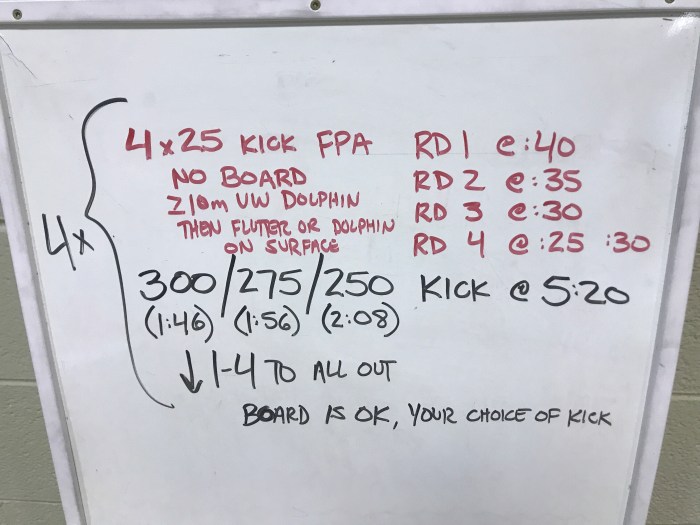 4x
4x25 KICK FPA RD 1 @ :40
NO BOARD RD 2 @ :35
≥10m UW DOLPHIN RD 3 @ :30
THEN FLUTTER OR DOLPHIN RD 4 @ :25 :30
ON SURFACE
300/275/250 KICK @ 5:20
(1:46) (1:56) (2:08)
↓ 1-4 TO ALL OUT
BOARD IS OK, YOUR CHOICE OF KICK